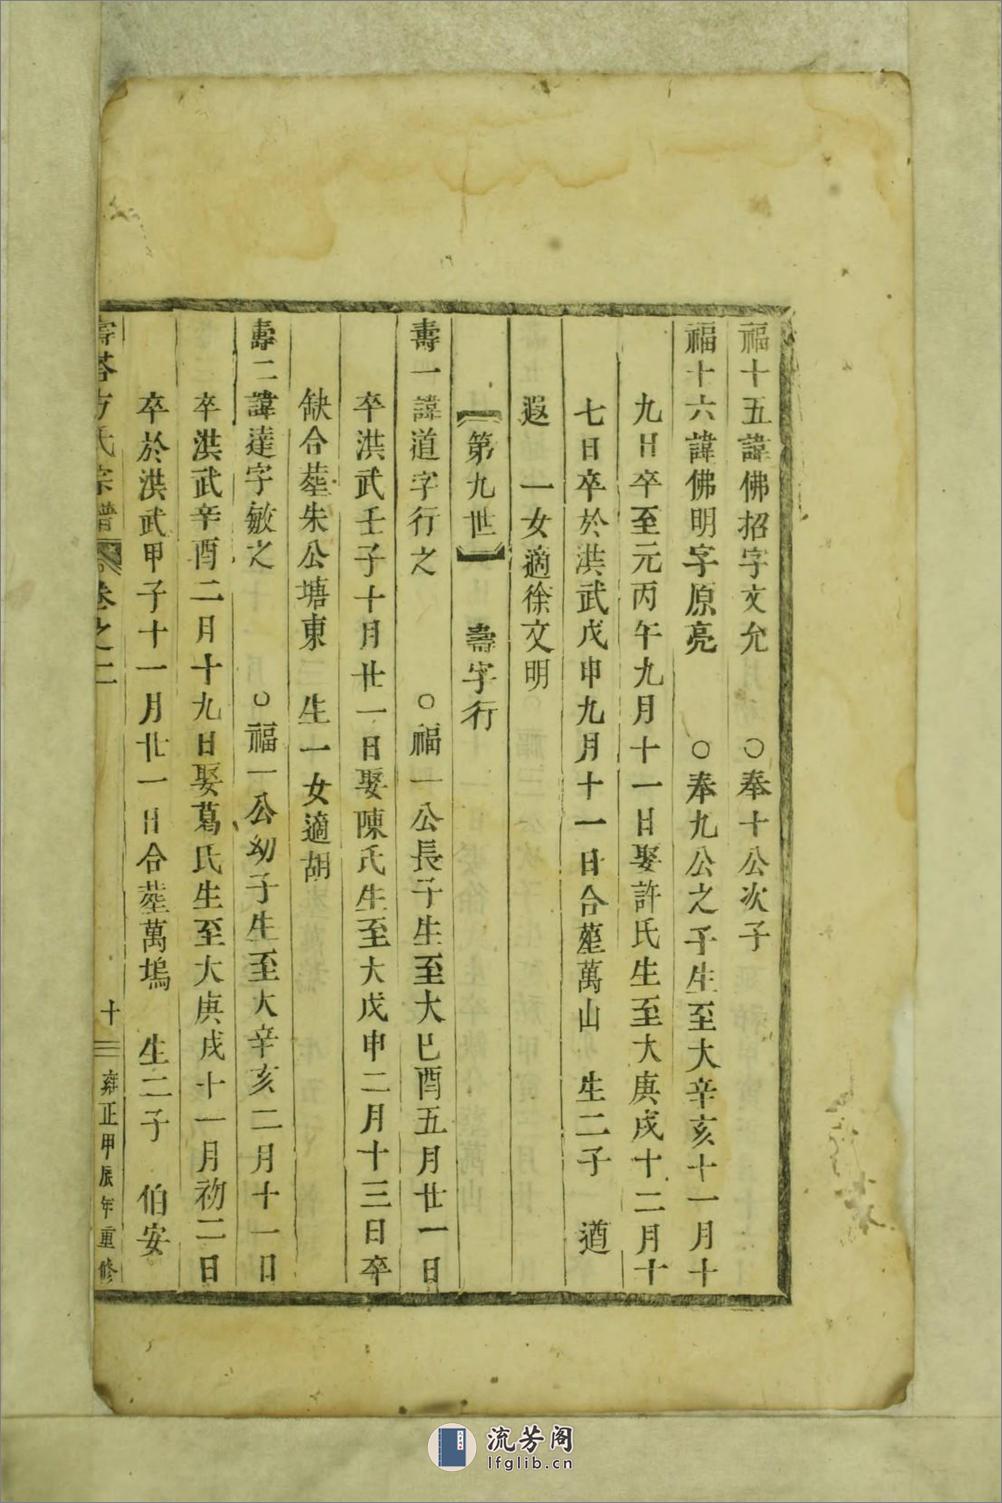 福十五諱佛招字文允　○奉十公次子
福十六諱佛明字原亮　○奉九公之子生至大辛亥十一月十
九日卒至元丙午九月十一日娶許氏生至大庚戌十二月十
七日卒於洪武戊申九月十一日合塟萬山　生二子　道
遐　一女適徐文明
【第九世】　壽字行
壽一諱道字行之　○福一公長子生至大巳酉五月廿一日
卒洪武壬子十月廿一日娶陳氏生至大戊申二月十三日卒
缺合塟朱公塘東　生一女適胡
壽二諱達字敏之　○福一公幼子生至大辛亥二月十一日
卒洪武辛酉二月十九日娶葛氏生至大庚戌十一月初二日
卒於洪武甲子十一月廿一日合塟萬塢　生二子　伯安
壽塔方氏宗譜　卷之二　十　雍正甲辰年重修
流芳阁
lfglib.cn